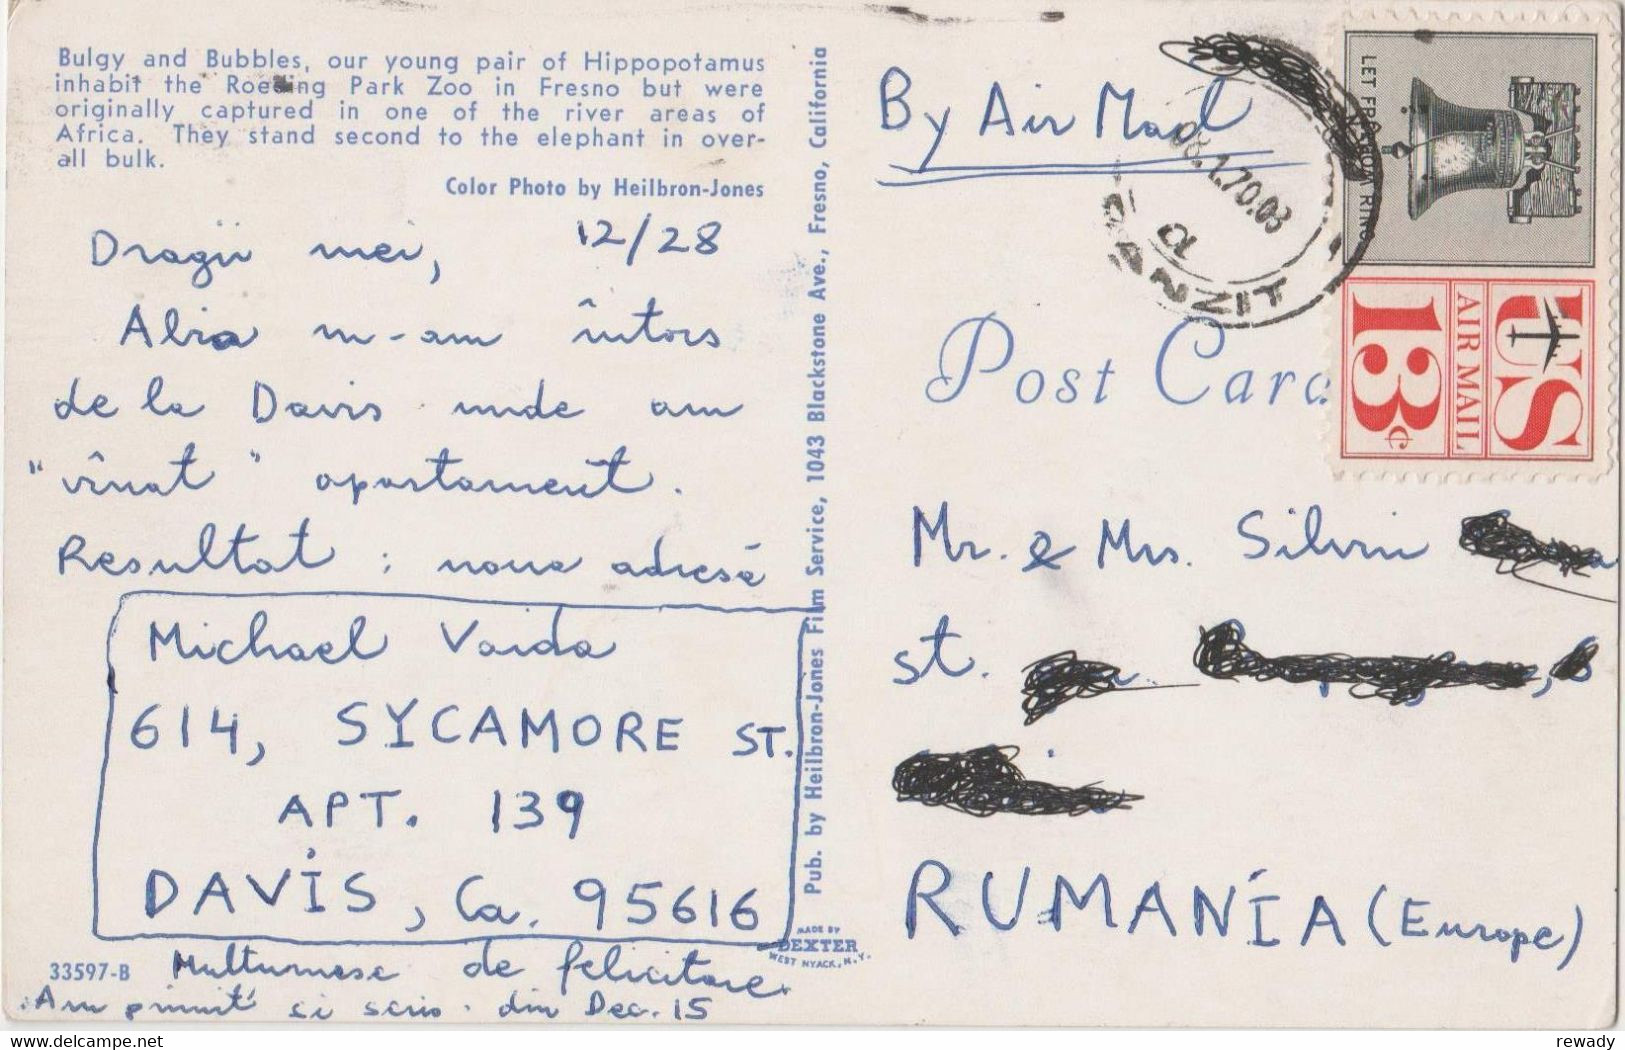 Bulgy and Bubbles, our young pair of Hippopotamus
inhabit the Roeding Park Zoo in Fresno but were
originally captured in one of the river areas of
Africa. They stand second to the elephant in over-
all bulk.
Color Photo by Heilbron-Jones
12/28
Dragii mei,
Abia m-am întors
de la Davis unde am
"vînat" apartament.
Resultat : noua adresă
Michael Vaida
614, SYCAMORE ST.
APT. 139
DAVİS, Ca. 95616
Multumesc de felicitare.
Am primit si scris. din Dec. 15
33597-B
Pub. by Heilbron-Jones Film Service, 1043 Blackstone Ave., Fresno, California
MADE BY
DEXTER
WEST NYACK, N.Y.
By Air Mail
08.1.70.03
TRANZIT
LET FREEDOM RING
US
AIR MAIL
13c
Post Card
Mr. & Mrs. Silviu
st.
RUMANÍA (Europe)
rewady
delcampe.net